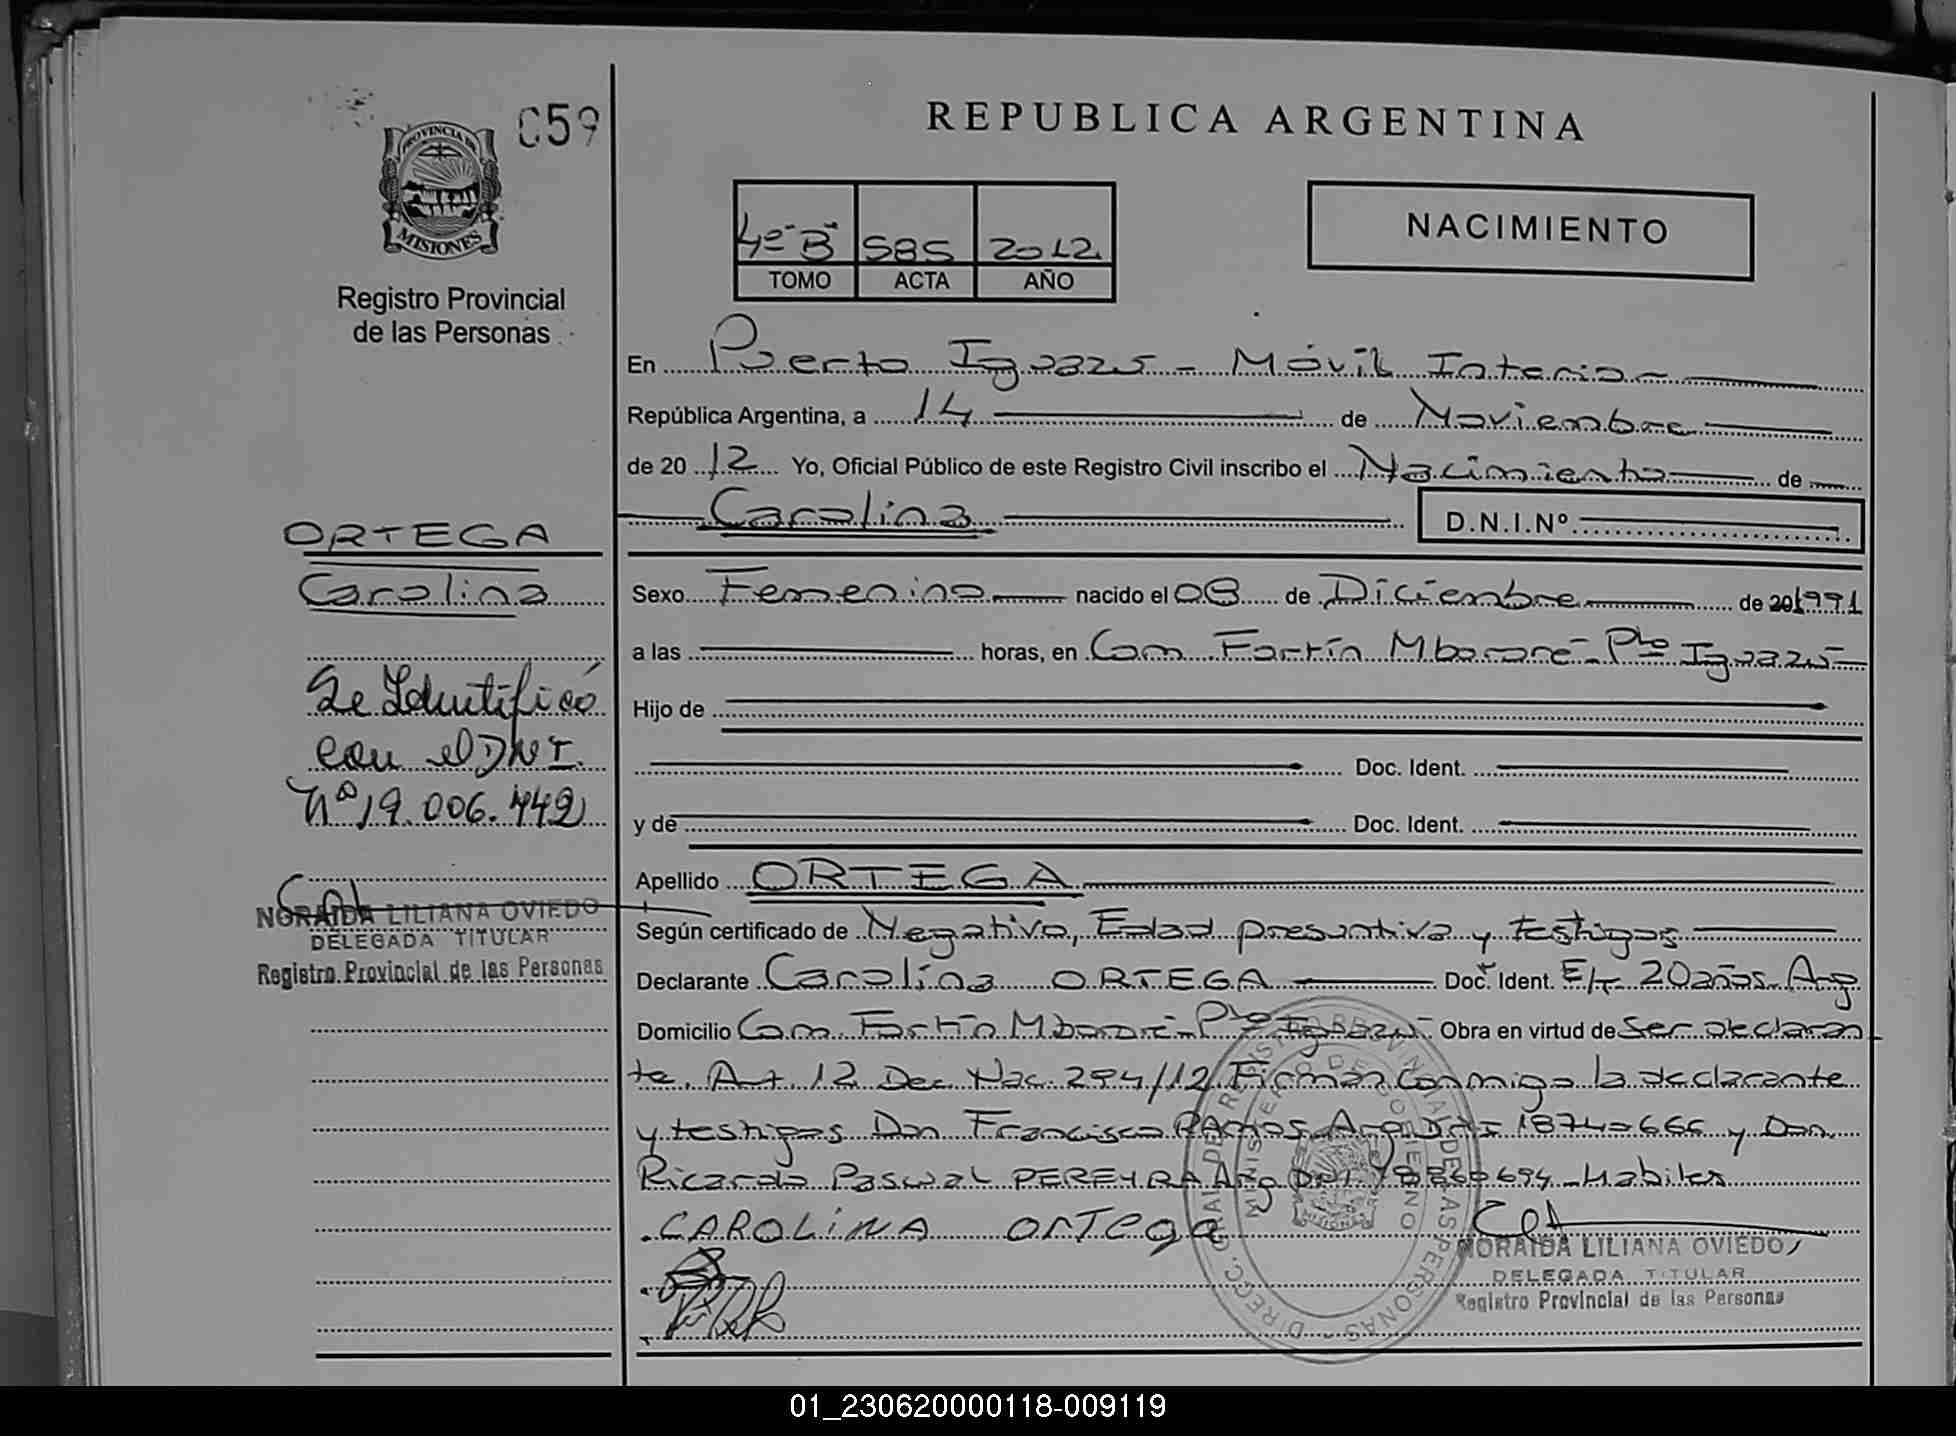 059
PROVINCIA DE
MISIONES
Registro Provincial
de las Personas
REPUBLICA ARGENTINA
4º "B" 585 2012
TOMO ACTA AÑO
NACIMIENTO
En Puerto Iguazú - Móvil Interior
República Argentina, a 14 de Noviembre
de 2012 Yo, Oficial Público de este Registro Civil inscribo el Nacimiento de
Carolina D.N.I.Nº
ORTEGA
Carolina
Se Identificó
con el DNI.
Nº 19.006.442
NORAIDA LILIANA OVIEDO
DELEGADA TITULAR
Registro Provincial de las Personas
Sexo Femenino nacido el 08 de Diciembre de 20 1991
a las horas, en Com Fortín Mbororé - Pto Iguazú
Hijo de
Doc. Ident.
y de Doc. Ident.
Apellido ORTEGA
Según certificado de Negativo, Edad presuntiva y testigos
Declarante Carolina ORTEGA Doc. Ident. E/T 20 años Arg
Domicilio Com. Fortín Mbororé - Pto Iguazú Obra en virtud de ser declaran
te. Art. 12 Dec Nac. 294/12 Firman conmigo la declarante
y testigos Don Francisco RAMOS Arg DNI 18740666 y Don
Ricardo Pascual PEREYRA Arg DNI 694 - Habiles
CAROLINA ORTega
NORAIDA LILIANA OVIEDO
DELEGADA TITULAR
Registro Provincial de las Personas
DIRECC. GRAL DEL REGISTRO PROVINCIAL DE LAS PERSONAS
MINISTERIO DE GOBIERNO
MISIONES
01_230620000118-009119